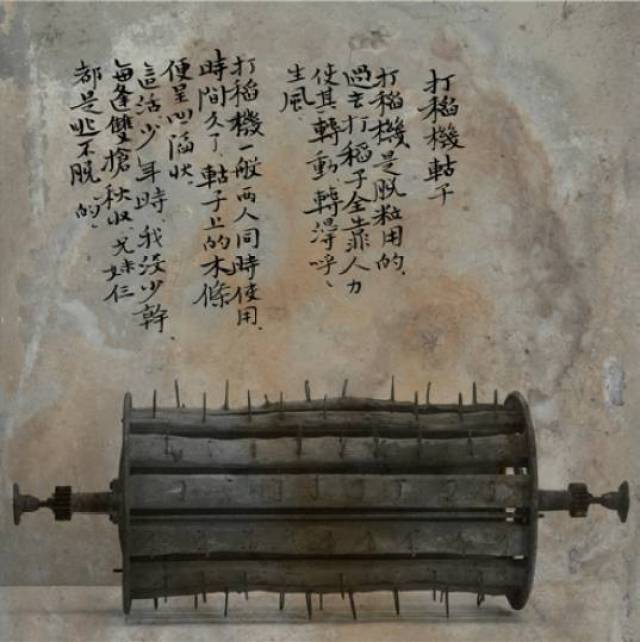 打稻機轱子
打稻機是脱粒用的.
過去打稻子全靠人力
使其轉動轉得呼、
生風.
打稻機一般兩人同時使用.
時間久了、轱子上的木條
便呈凹陷狀.
這活、少年時、我没少幹.
每逢雙搶秋收、兄妹仨
都是逃不脱的.